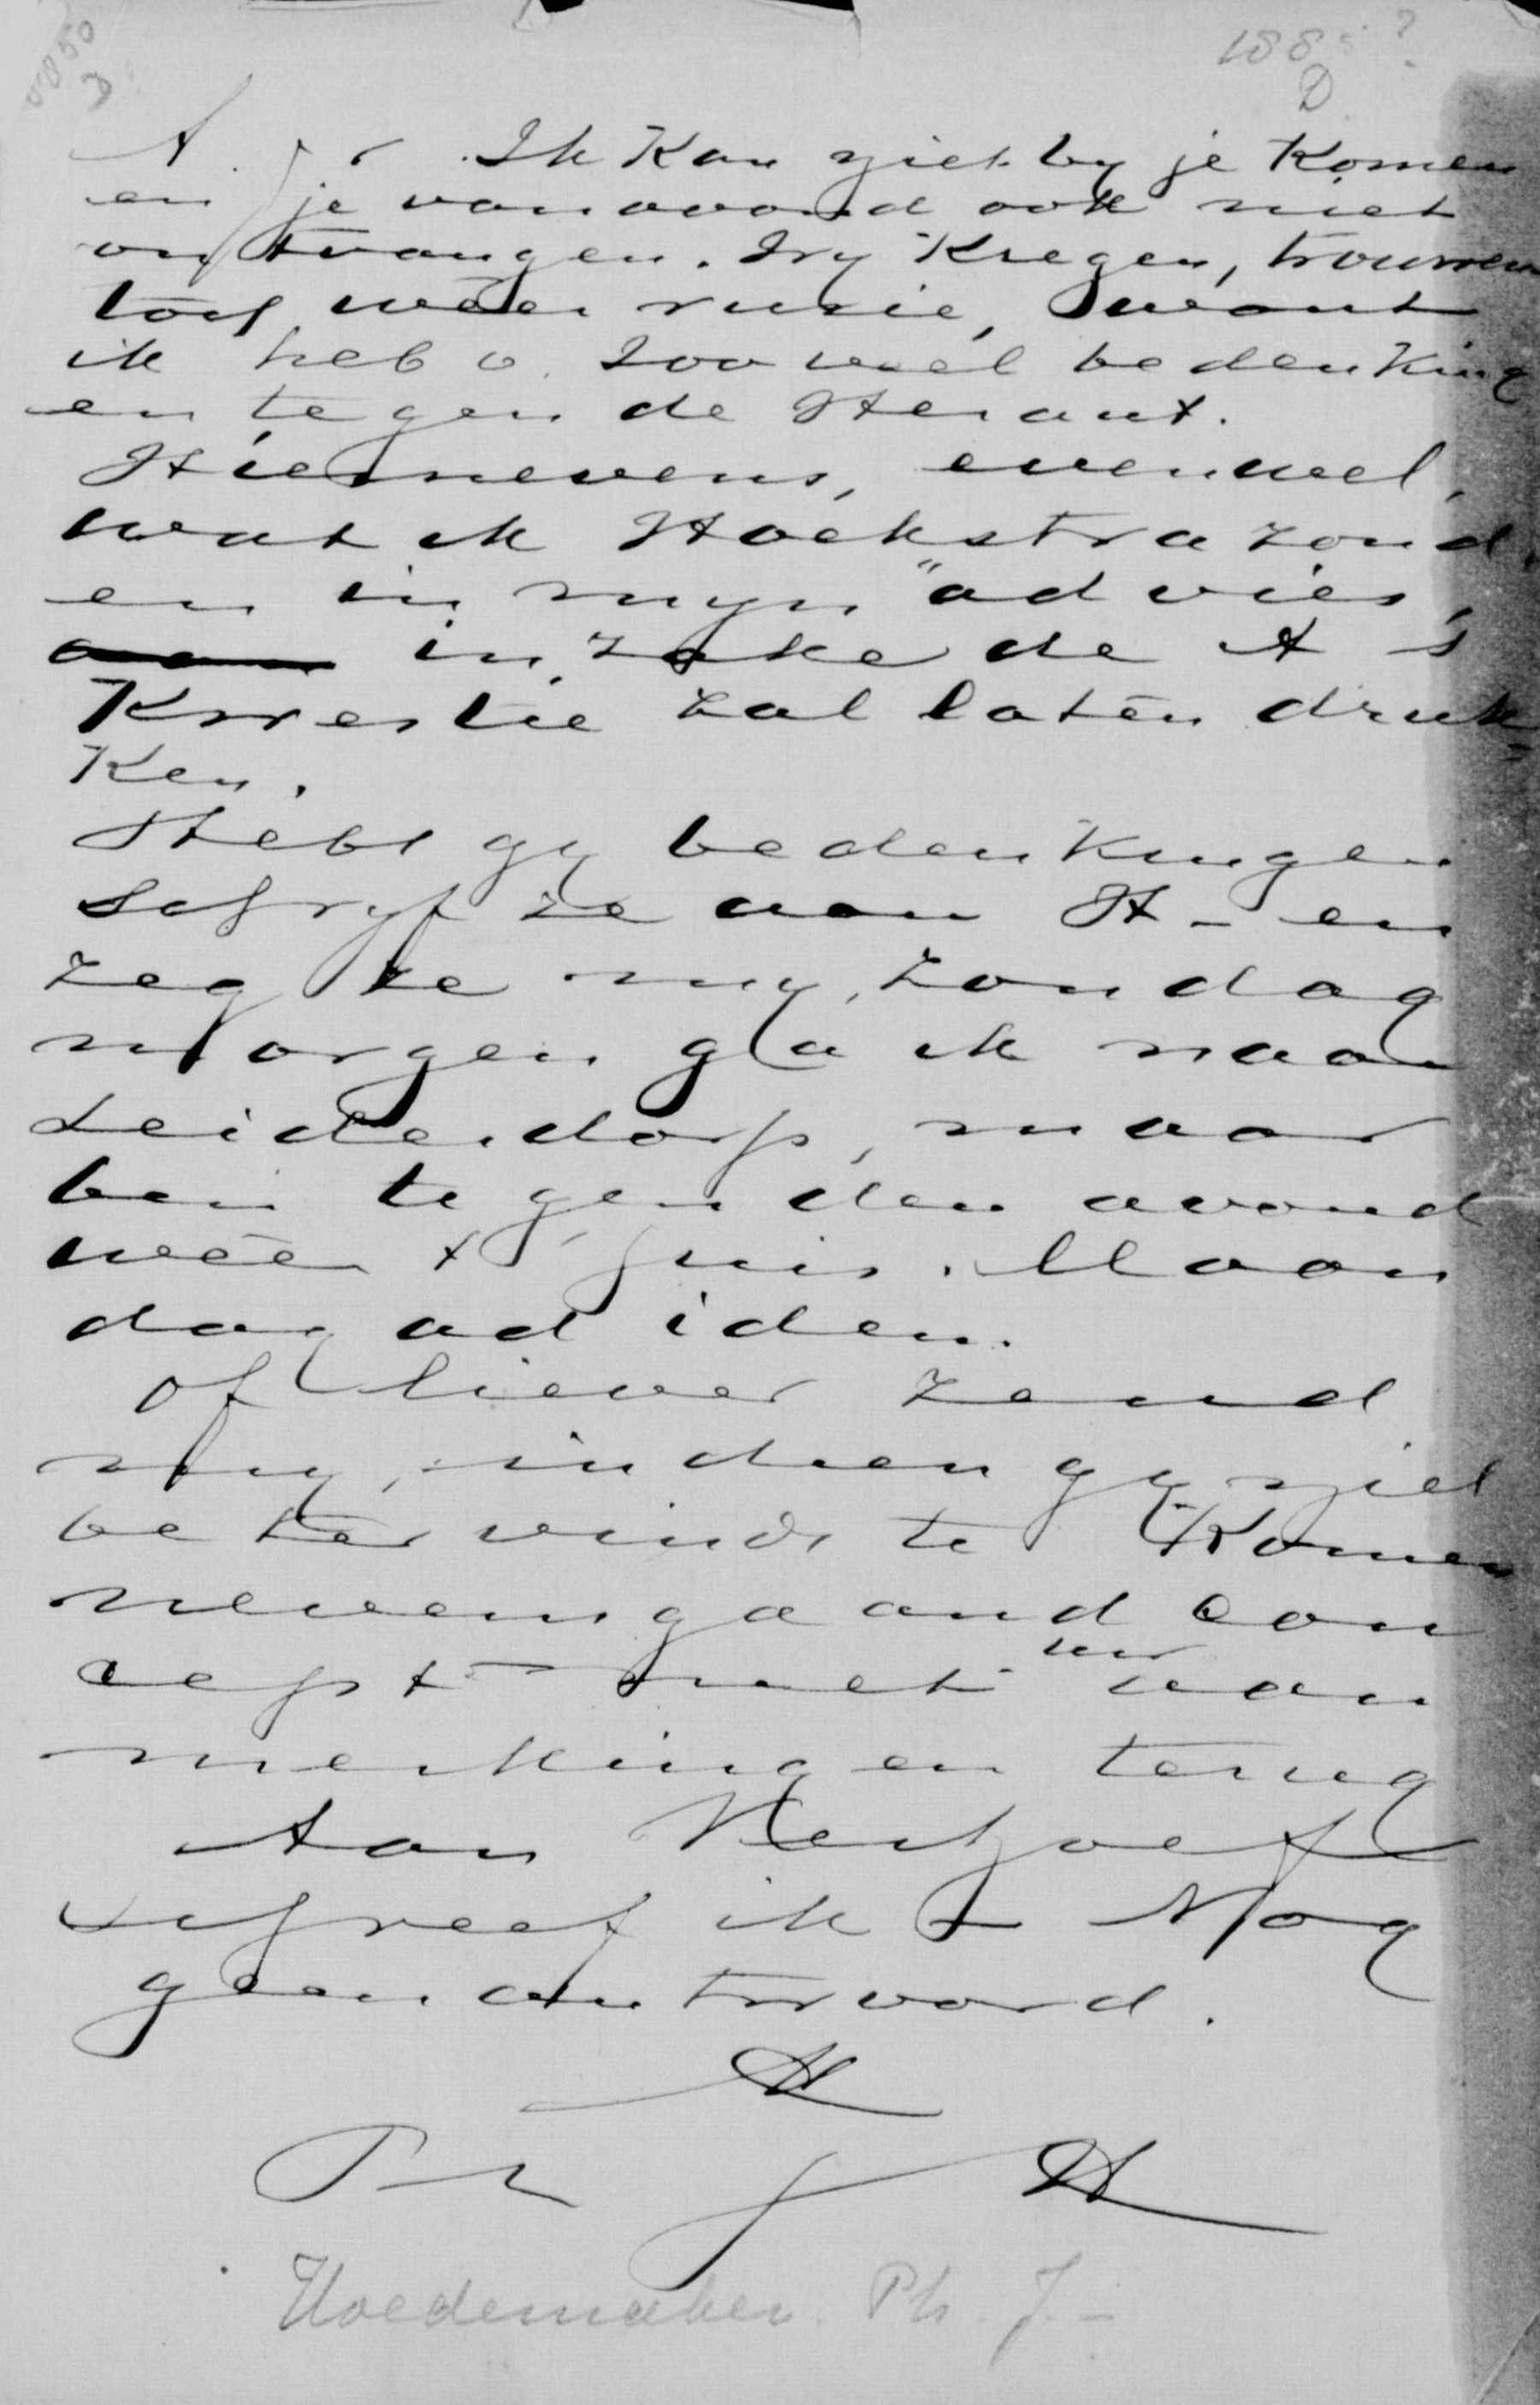 1885?
D
A. f r. Ik Kan niet by je Komen
en je vanavond ook niet
ontvangen. Wy Kregen, trouwens
toch weer ruzie, want
ik heb o. zoo veel bedenking
en tegen de Heraut.
Hiernevens, evenwel,
wat ik Hoekstra zond.
en in myn "advies,
inzake de A s
Kwestie zal laten druk=
Ken.
Hebt gy bedenkingen
schryf ze aan H - en
zeg ze my, zondag
morgen ga ik naar
Leiderdorp, maar
ben tegen den avond
weer t huis. Maan
dag ad idem.
of liever zend
my, indien gy niet
beter vindt te Komen
nevensgaand con
cept met uw aan
merkingen terug
Aan Verhoeff
schreef ik - Nog
geen antwoord.
tt
Ph J H
Hoedemaker. Ph. J.-